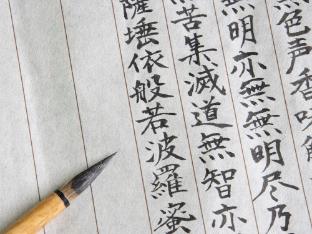 無色声香味
無明亦無無明尽乃
苦集滅道無智亦
薩埵依般若波羅蜜